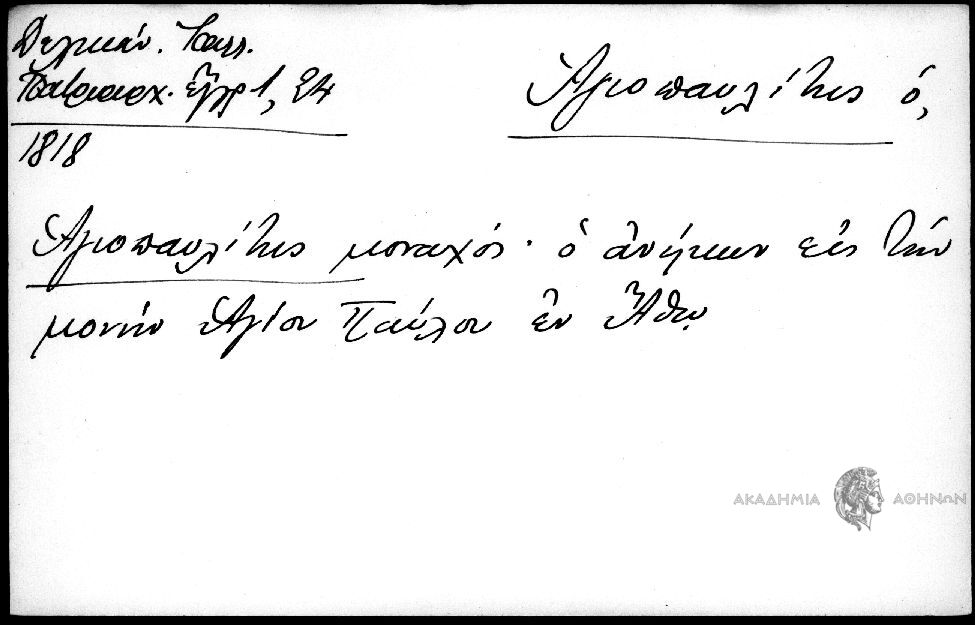 Δελικάν. Καλλ.
Πατριαρχ. ἔγγρ 1, 24
1818
Ἁγιοπαυλίτης ὁ,
Ἁγιοπαυλίτης μοναχός· ὁ ἀνήκων εἰς τὴν
μονὴν Ἁγίου Παύλου ἐν Ἄθῳ
ΑΚΑΔΗΜΙΑ ΑΘΗΝΩΝ